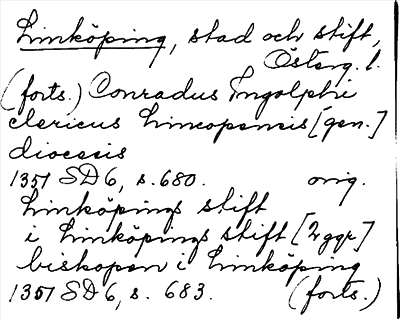 Linköping, stad och stift,
Österg. l.
(forts.) Conradus Ingolphi
clericus Lincopensis [gen.]
diocesis
1351 SD 6, s. 680. orig.
Linköpings stift
i Linköpings stift [2 ggr]
biskopen i Linköping
1351 SD 6, s. 683. (forts.)